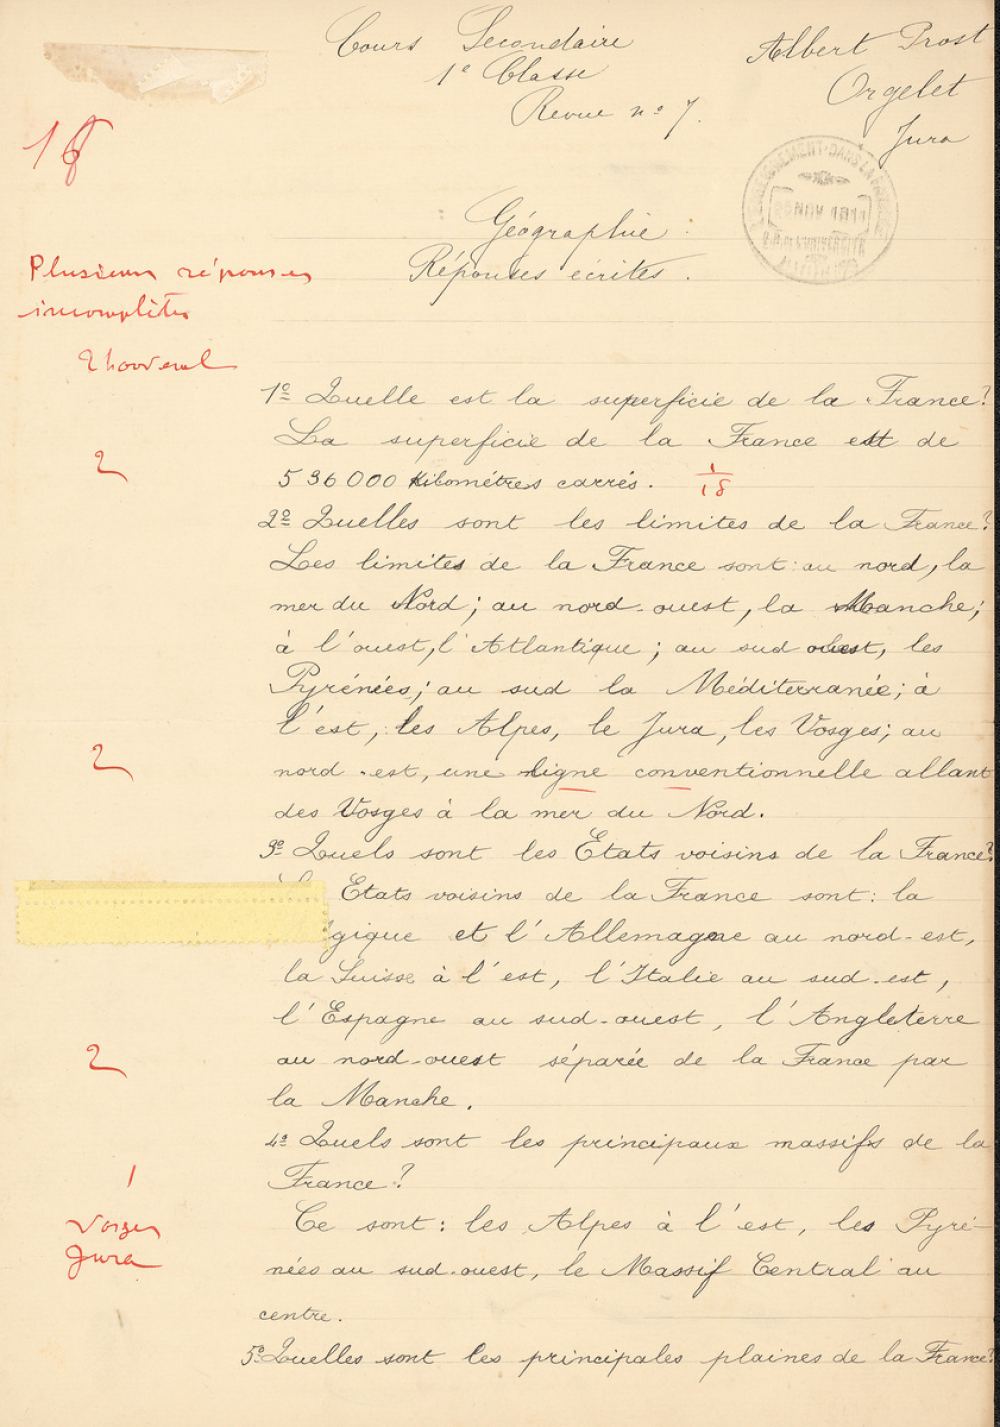 Cours Secondaire
1e Classe
Revue nº 7.
Albert Prost
Orgelet
Jura
16
Géographie
Réponses écrites.
Plusieurs réponses
incomplètes
1º Quelle est la superficie de la France?
La superficie de la France est de
536000 kilomètres carrés.
1/18
2
2º Quelles sont les limites de la France?
Les limites de la France sont: au nord, la
mer du Nord; au nord-ouest, la Manche;
à l'ouest, l'Atlantique; au sud ouest, les
Pyrénées; au sud la Méditerranée; à
l'est, les Alpes, le Jura, les Vosges; au
nord-est, une ligne conventionnelle allant
des Vosges à la mer du Nord.
2
3º Quels sont les Etats voisins de la France?
Etats voisins de la France sont: la
gique et l'Allemagne au nord-est,
la Suisse à l'est, l'Italie au sud-est,
l'Espagne au sud-ouest, l'Angleterre
au nord-ouest séparée de la France par
la Manche.
2
4º Quels sont les principaux massifs de la
France?
Ce sont: les Alpes à l'est, les Pyré-
nées au sud-ouest, le Massif Central au
centre.
1
Vosges
Jura
5º Quelles sont les principales plaines de la France?